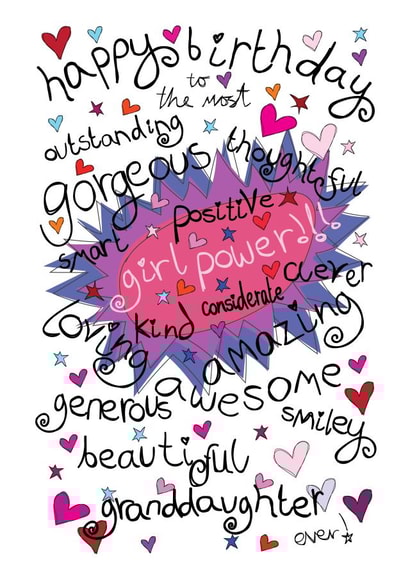 happy birthday
to
the most
outstanding
thoughtful
gorgeous
positive
smart
girl power!!!
clever
considerate
kind
loving
amazing
awesome
generous
smiley
beautiful
granddaughter
ever!